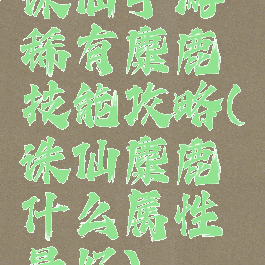 诛仙手游
稀有麋鹿
技能攻略(
诛仙麋鹿
什么属性
最好)